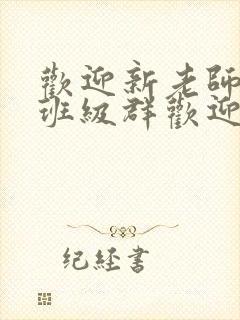 歡迎新老師
班級群歡迎
纪经書